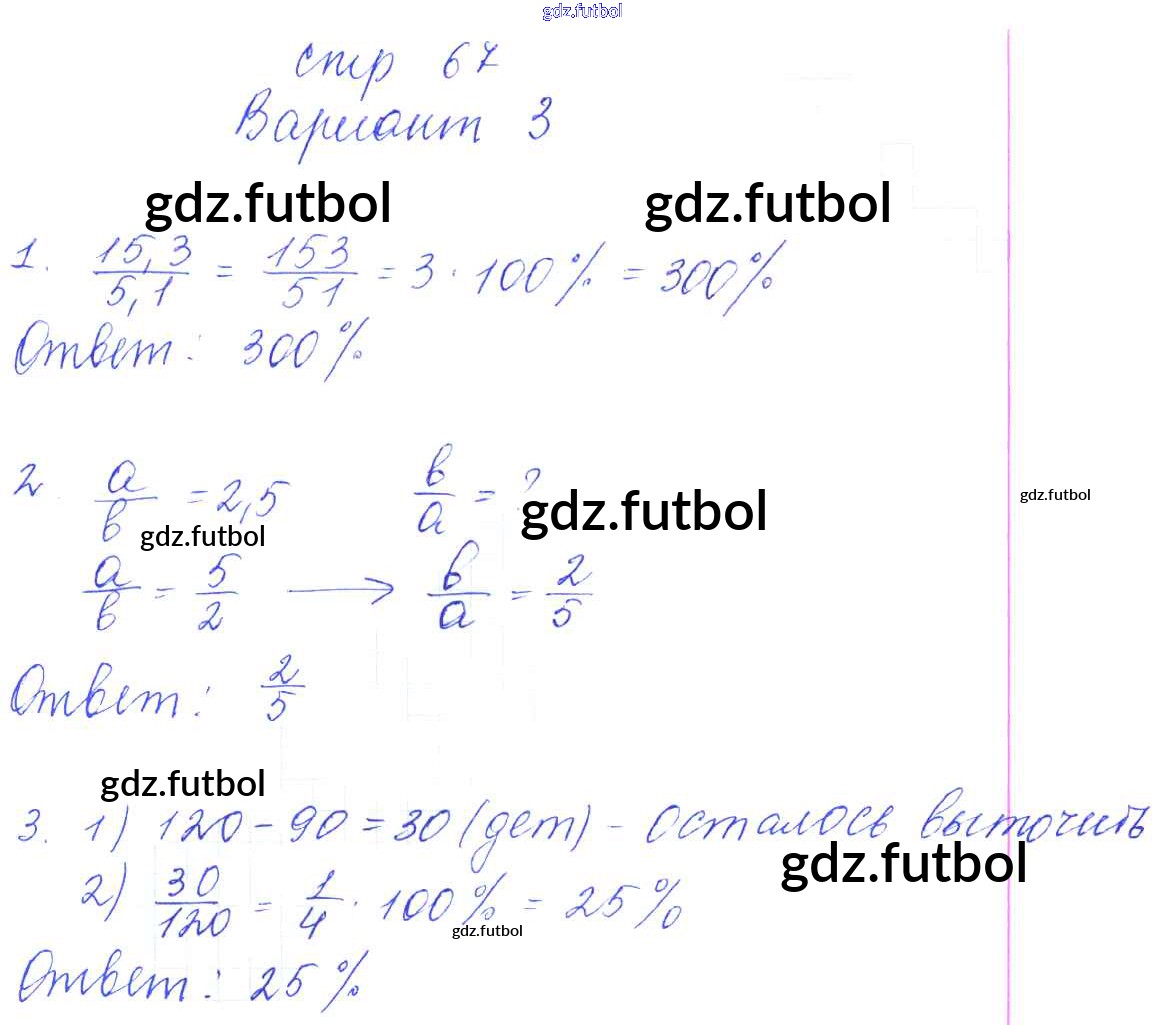 gdz.futbol
стр 67
Вариант 3
gdz.futbol gdz.futbol
1. 15,3/5,1 = 153/51 = 3 · 100% = 300%
Ответ: 300%
2. a/b = 2,5 b/a = ?
gdz.futbol gdz.futbol gdz.futbol
a/b = 5/2 → b/a = 2/5
Ответ: 2/5
gdz.futbol
3. 1) 120 - 90 = 30 (дет) - осталось выточить
gdz.futbol
2) 30/120 = 1/4 · 100% = 25%
gdz.futbol
Ответ: 25%